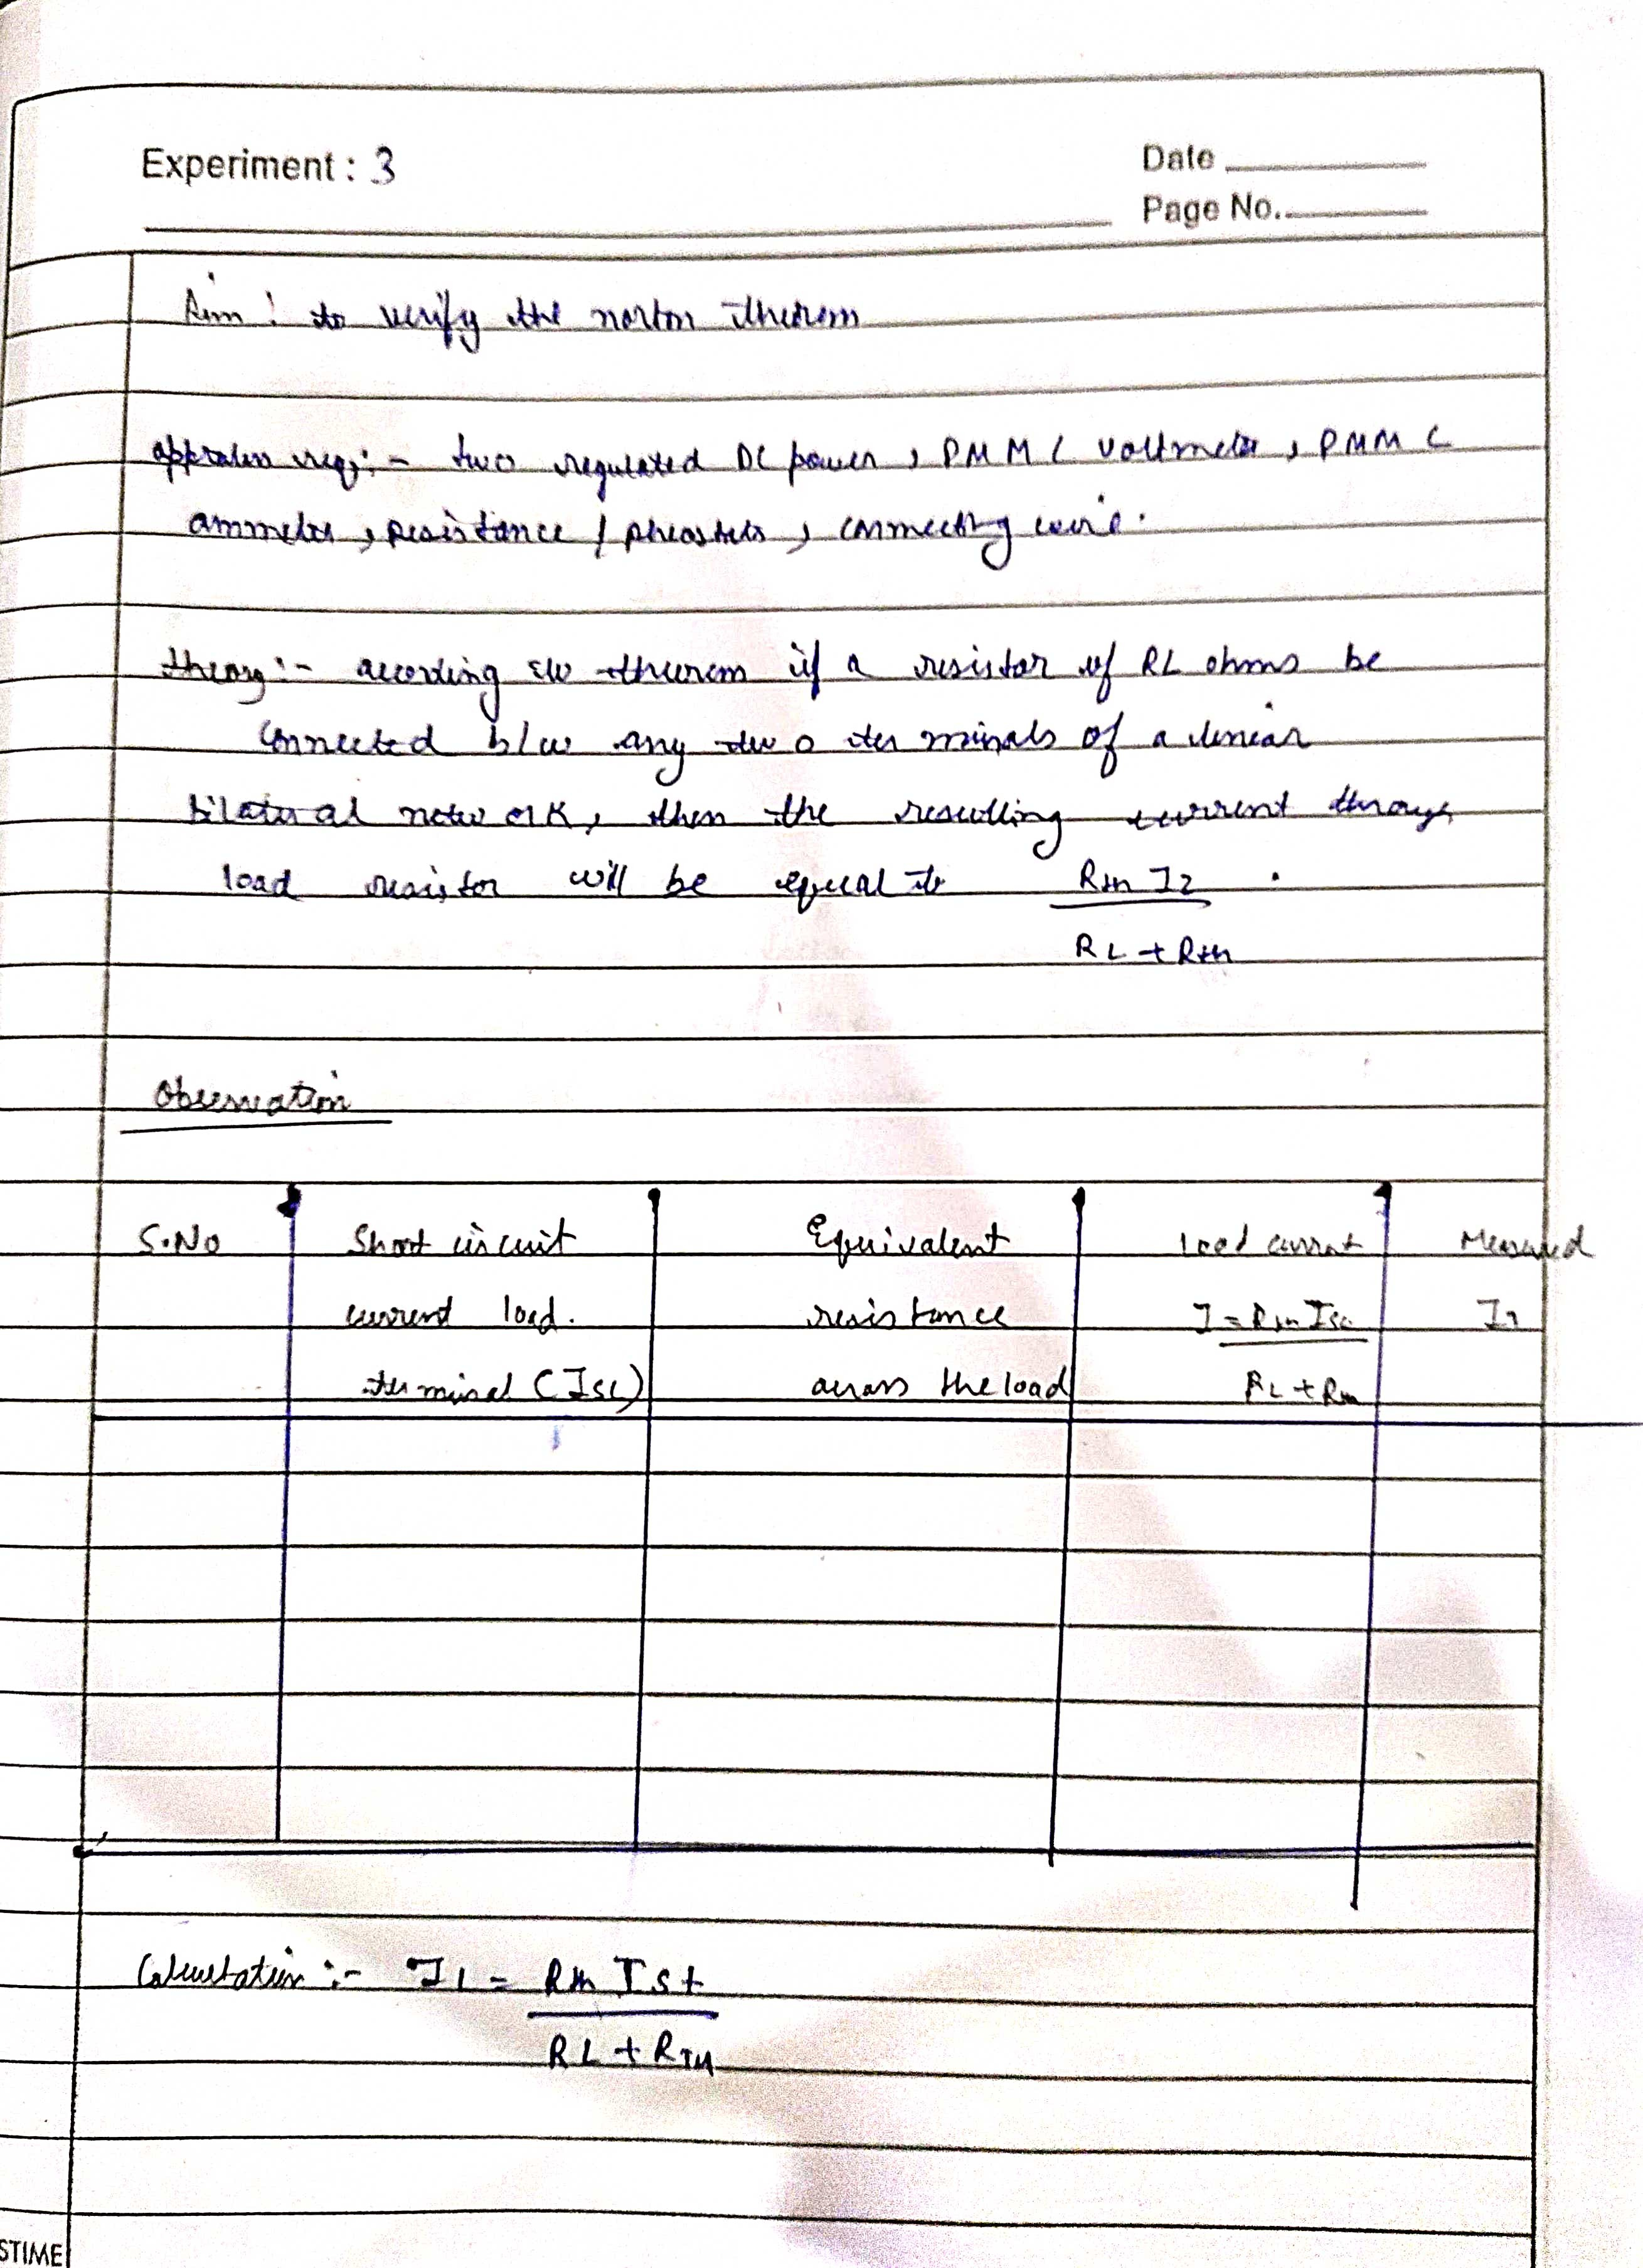 Experiment : 3
Date
Page No.
Aim : to verify the norton theorem
req :- two regulated DC power, PMMC voltmeter, PMMC
ammeter, resistance / rheostats, connecting wire.
theory :- according to theorem if a resistor of RL ohms be
connected b/w any two terminals of a linear
bilateral network, then the resulting current through
load resistor will be equal to Rth I2
RL + Rth
Observation
S.No Short circuit Equivalent load current Measured
current load. resistance I = Rth Isc
terminal (ISC) across the load RL + Rth
Calculation :- IL = Rth Ist
RL + RTH
STIME